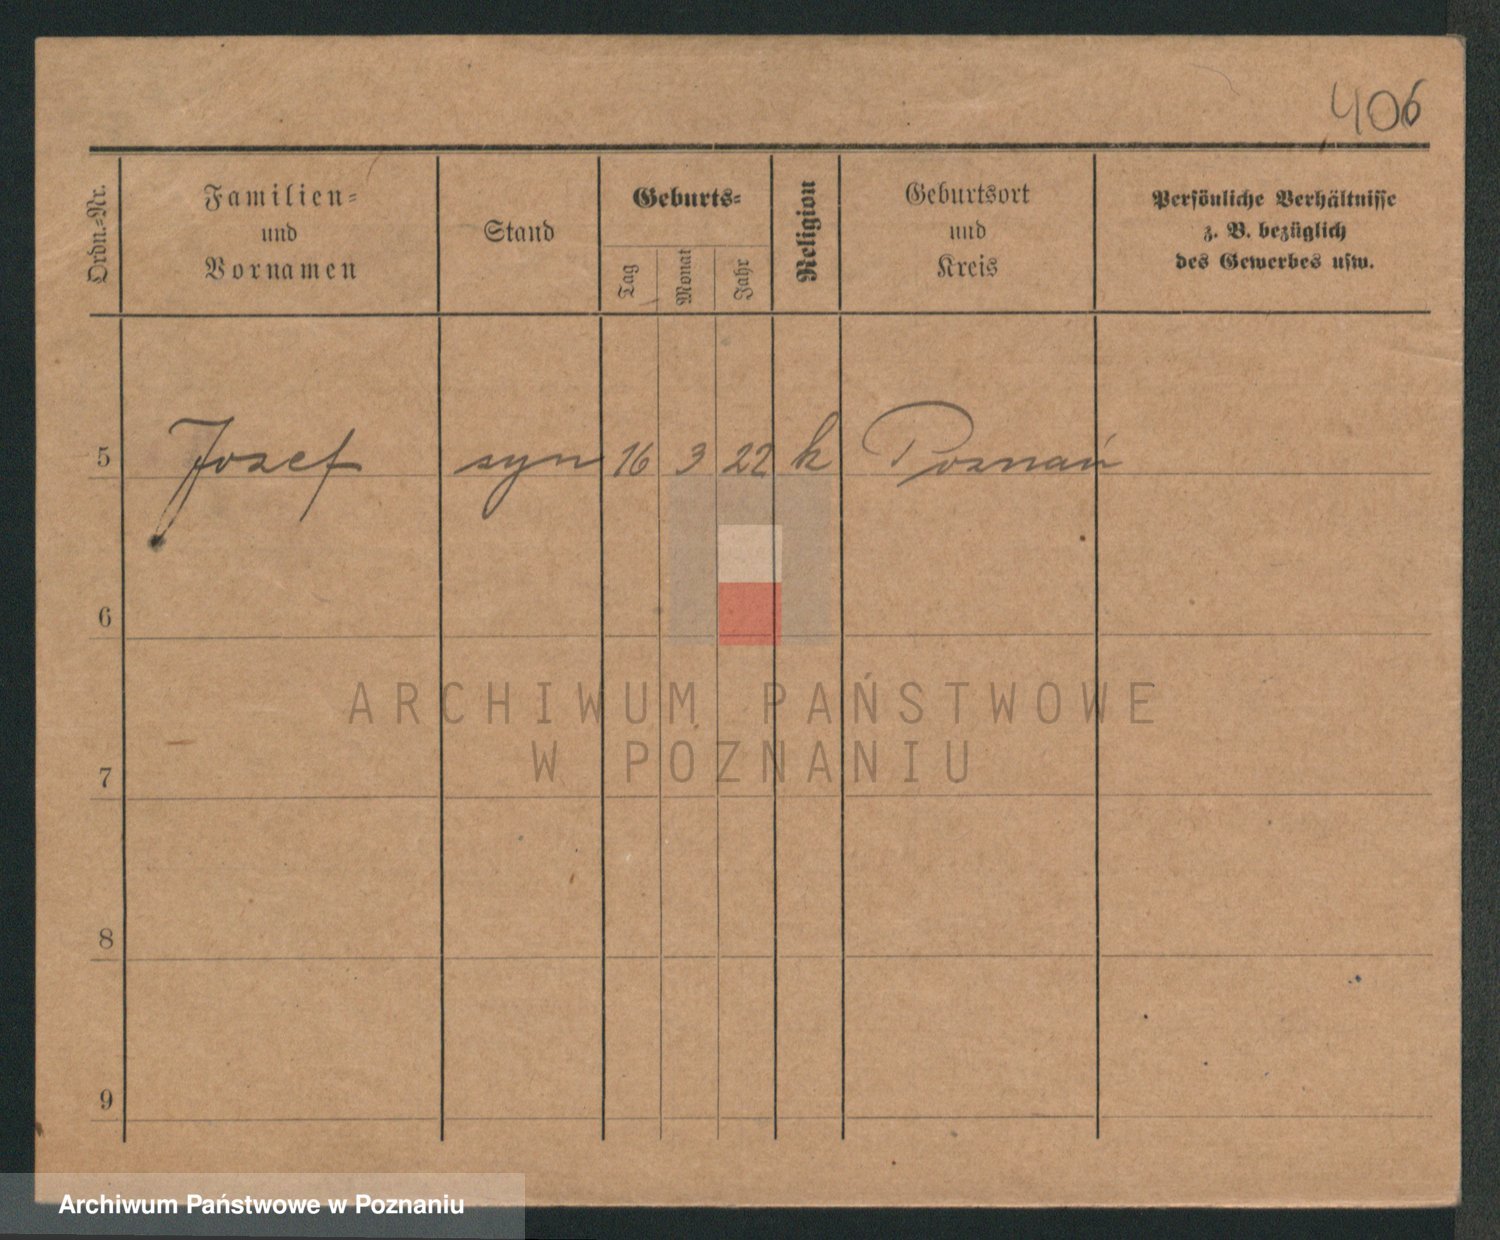 406
Ordn.-Nr.
Familien-
und
Vornamen
Stand
Geburts-
Tag
Monat
Jahr
Religion
Geburtsort
und
Kreis
Persönliche Verhältnisse
z. B. bezüglich
des Gewerbes usw.
5 Jozef syn 16 3 22 k Poznań
6
7
8
9
ARCHIWUM PAŃSTWOWE
W POZNANIU
Archiwum Państwowe w Poznaniu